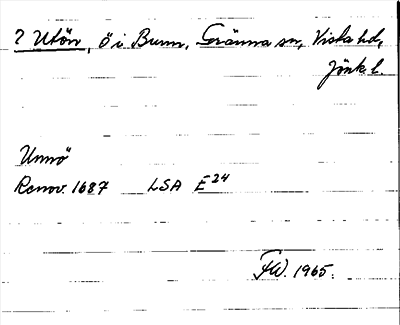 ? Utön, ö i Bunn, Gränna sn, Vista hd,
Jönk. l.
Unnö
Renov. 1687 LSA E24
FW. 1965.